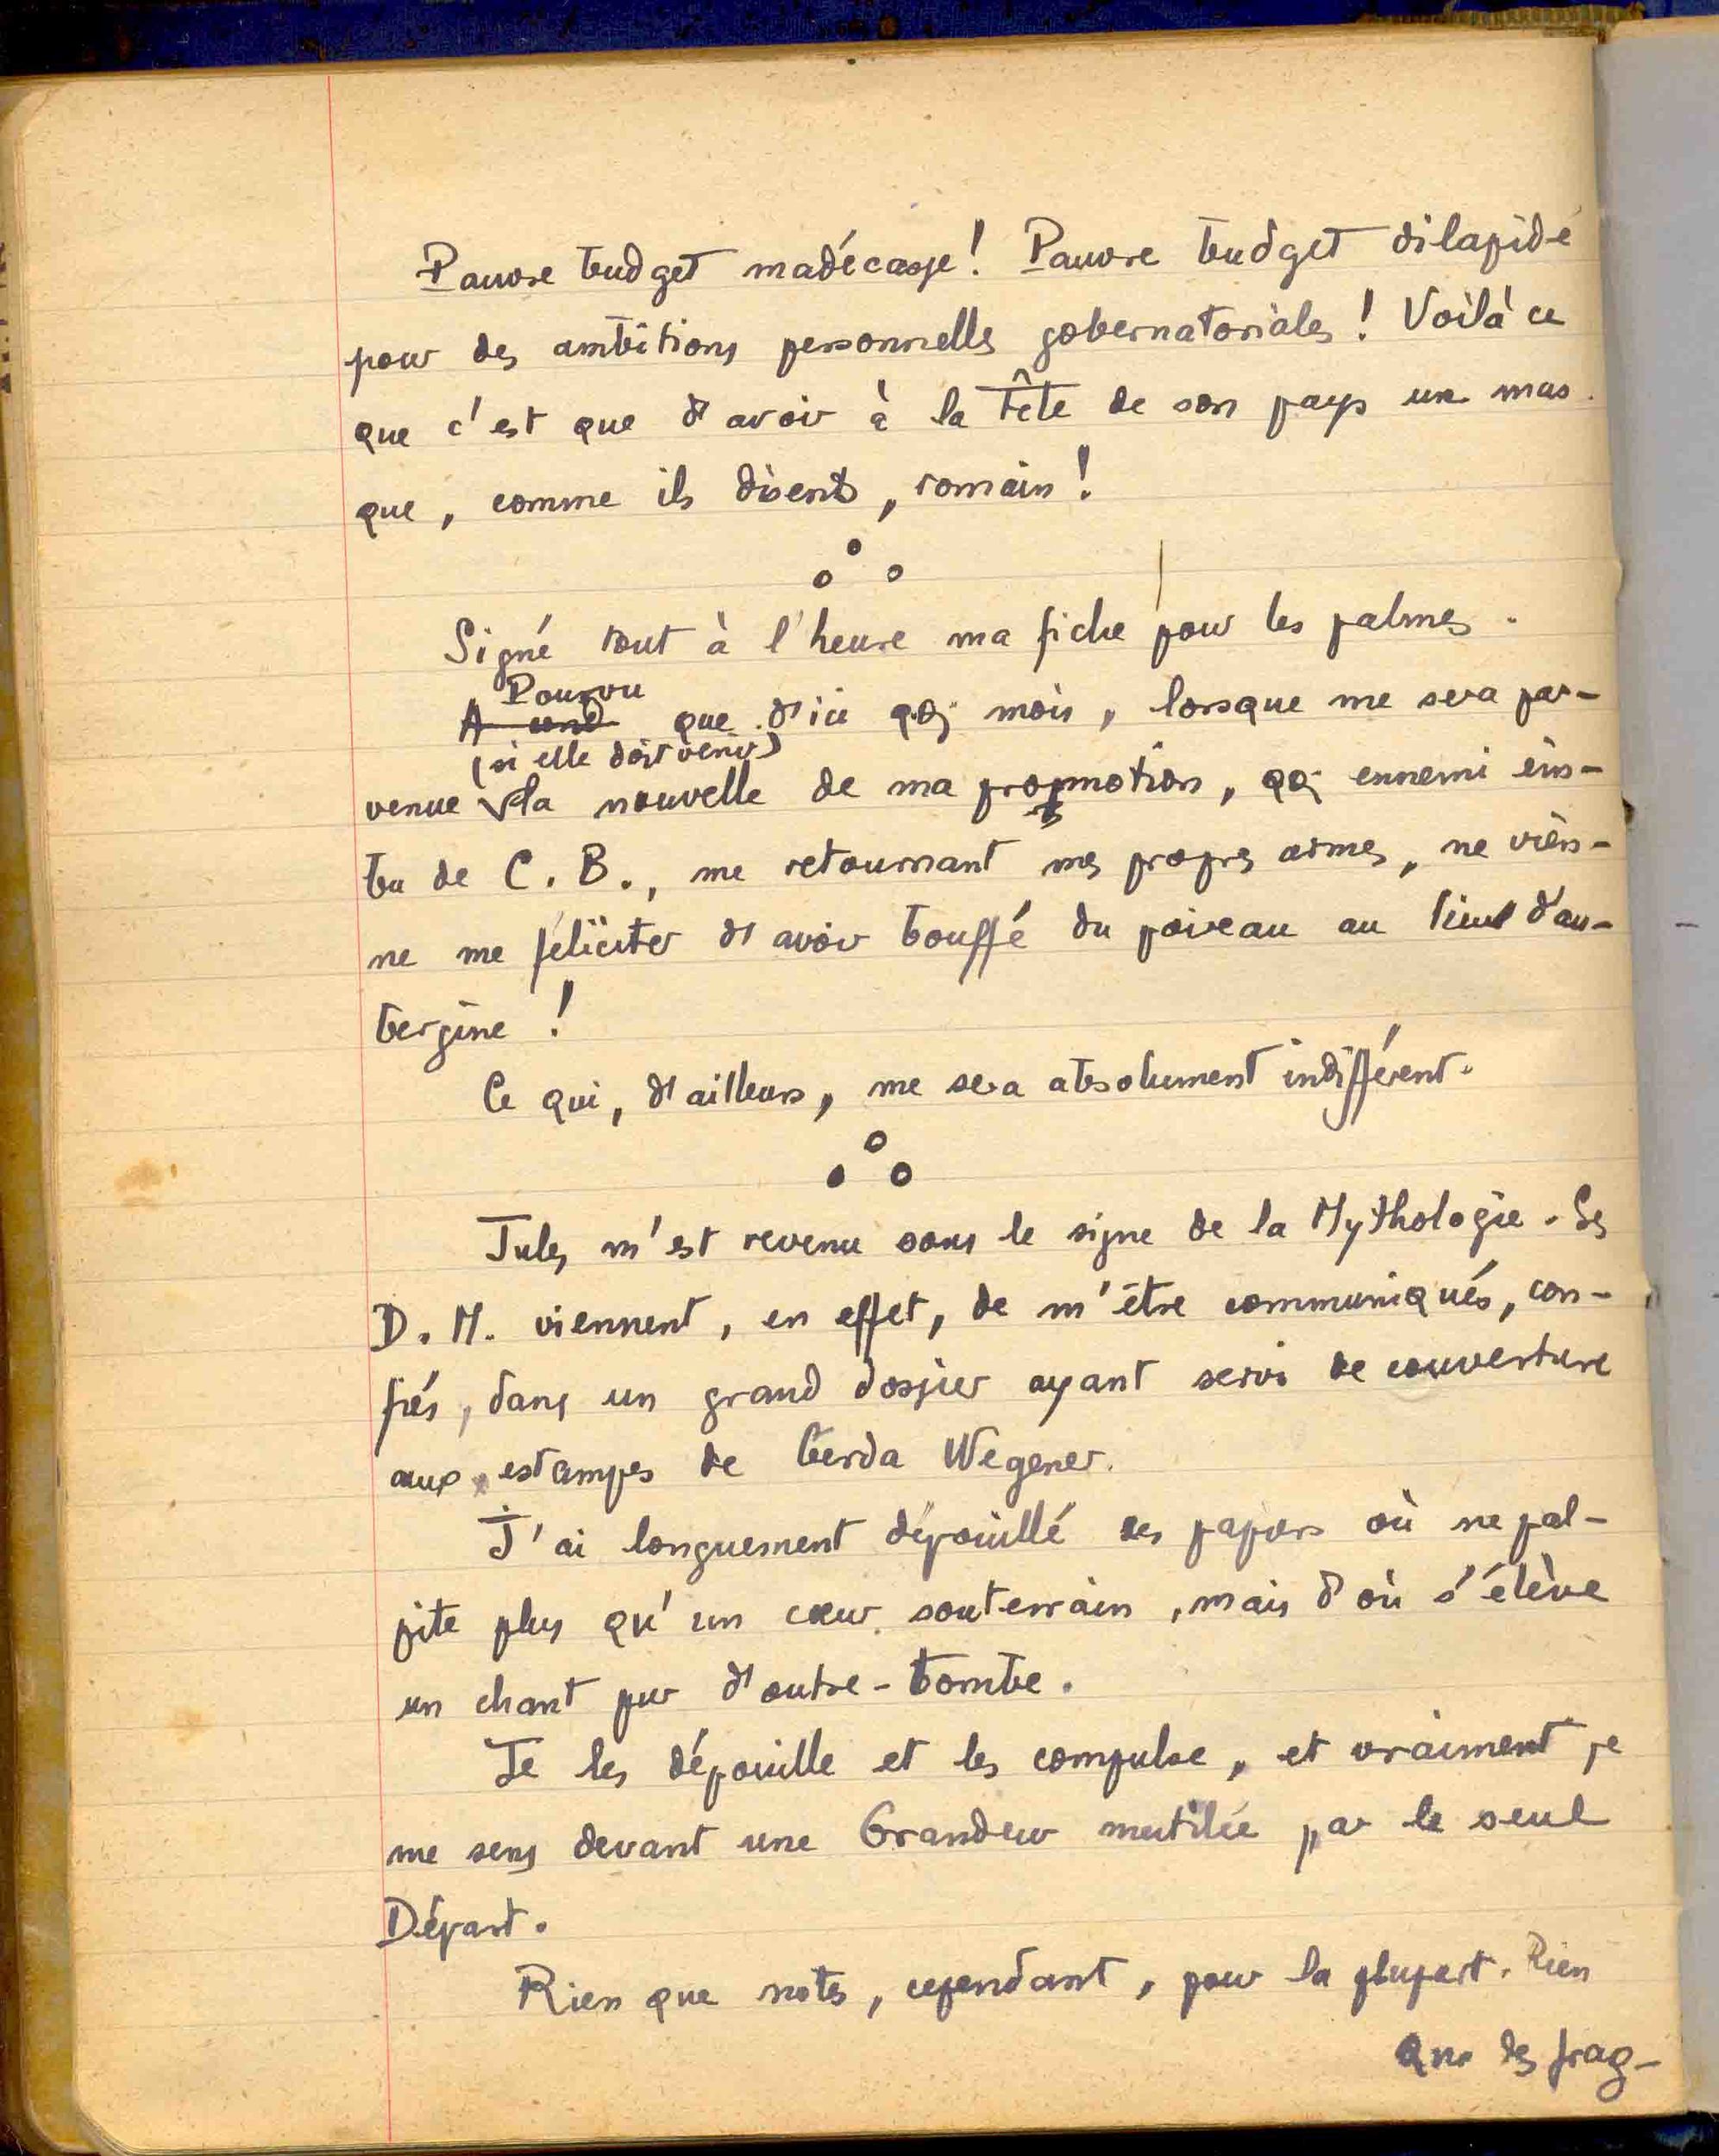 Pauvre budget madécasse! Pauvre budget dilapidé
pour des ambitions personnelles gobernatoriales! Voilà ce
que c'est que d'avoir à la tête de son pays un mas-
que, comme ils disent, romain!
Signé tout à l'heure ma fiche pour les palmes.
Pourvu
A cond que d'ici qq; mois, lorsque me sera par-
(si elle doit venir)
venue la nouvelle de ma promotion, qq; ennemi ém-
bu de C. B., me retournant mes propres armes, ne vien-
ne me féliciter d'avoir bouffé du poireau au lieu d'au-
bergine!
Ce qui, d'ailleurs, me sera absolument indifférent.
Jules m'est revenu sous le signe de la Mythologie. Les
D. M. viennent, en effet, de m'être communiqués, con-
fiés, dans un grand dossier ayant servi de couverture
aux estampes de Gerda Wegener.
J'ai longuement dépouillé ces papiers où ne pal-
pite plus qu'un cœur souterrain, mais d'où s'élève
un chant pur d'outre-tombe.
Je les dépouille et les compulse, et vraiment je
me sens devant une Grandeur mutilée par le seul
Départ.
Rien que notes, cependant, pour la plupart. Rien
que des frag-